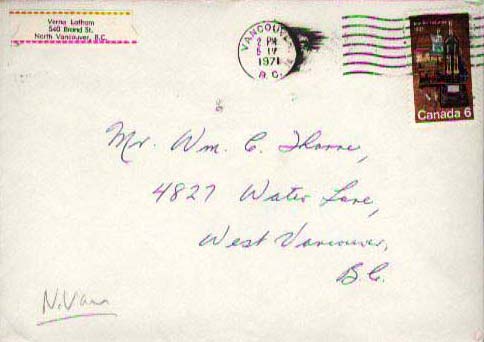 Verna Latham
540 Brand St.
North Vancouver, B.C.
VANCOUVER
2 PM
5 IV
1971
B.C.
Canada 6
Mr. Wm. C. Thorne,
4827 Water Lane,
West Vancouver,
B.C.
N. Van